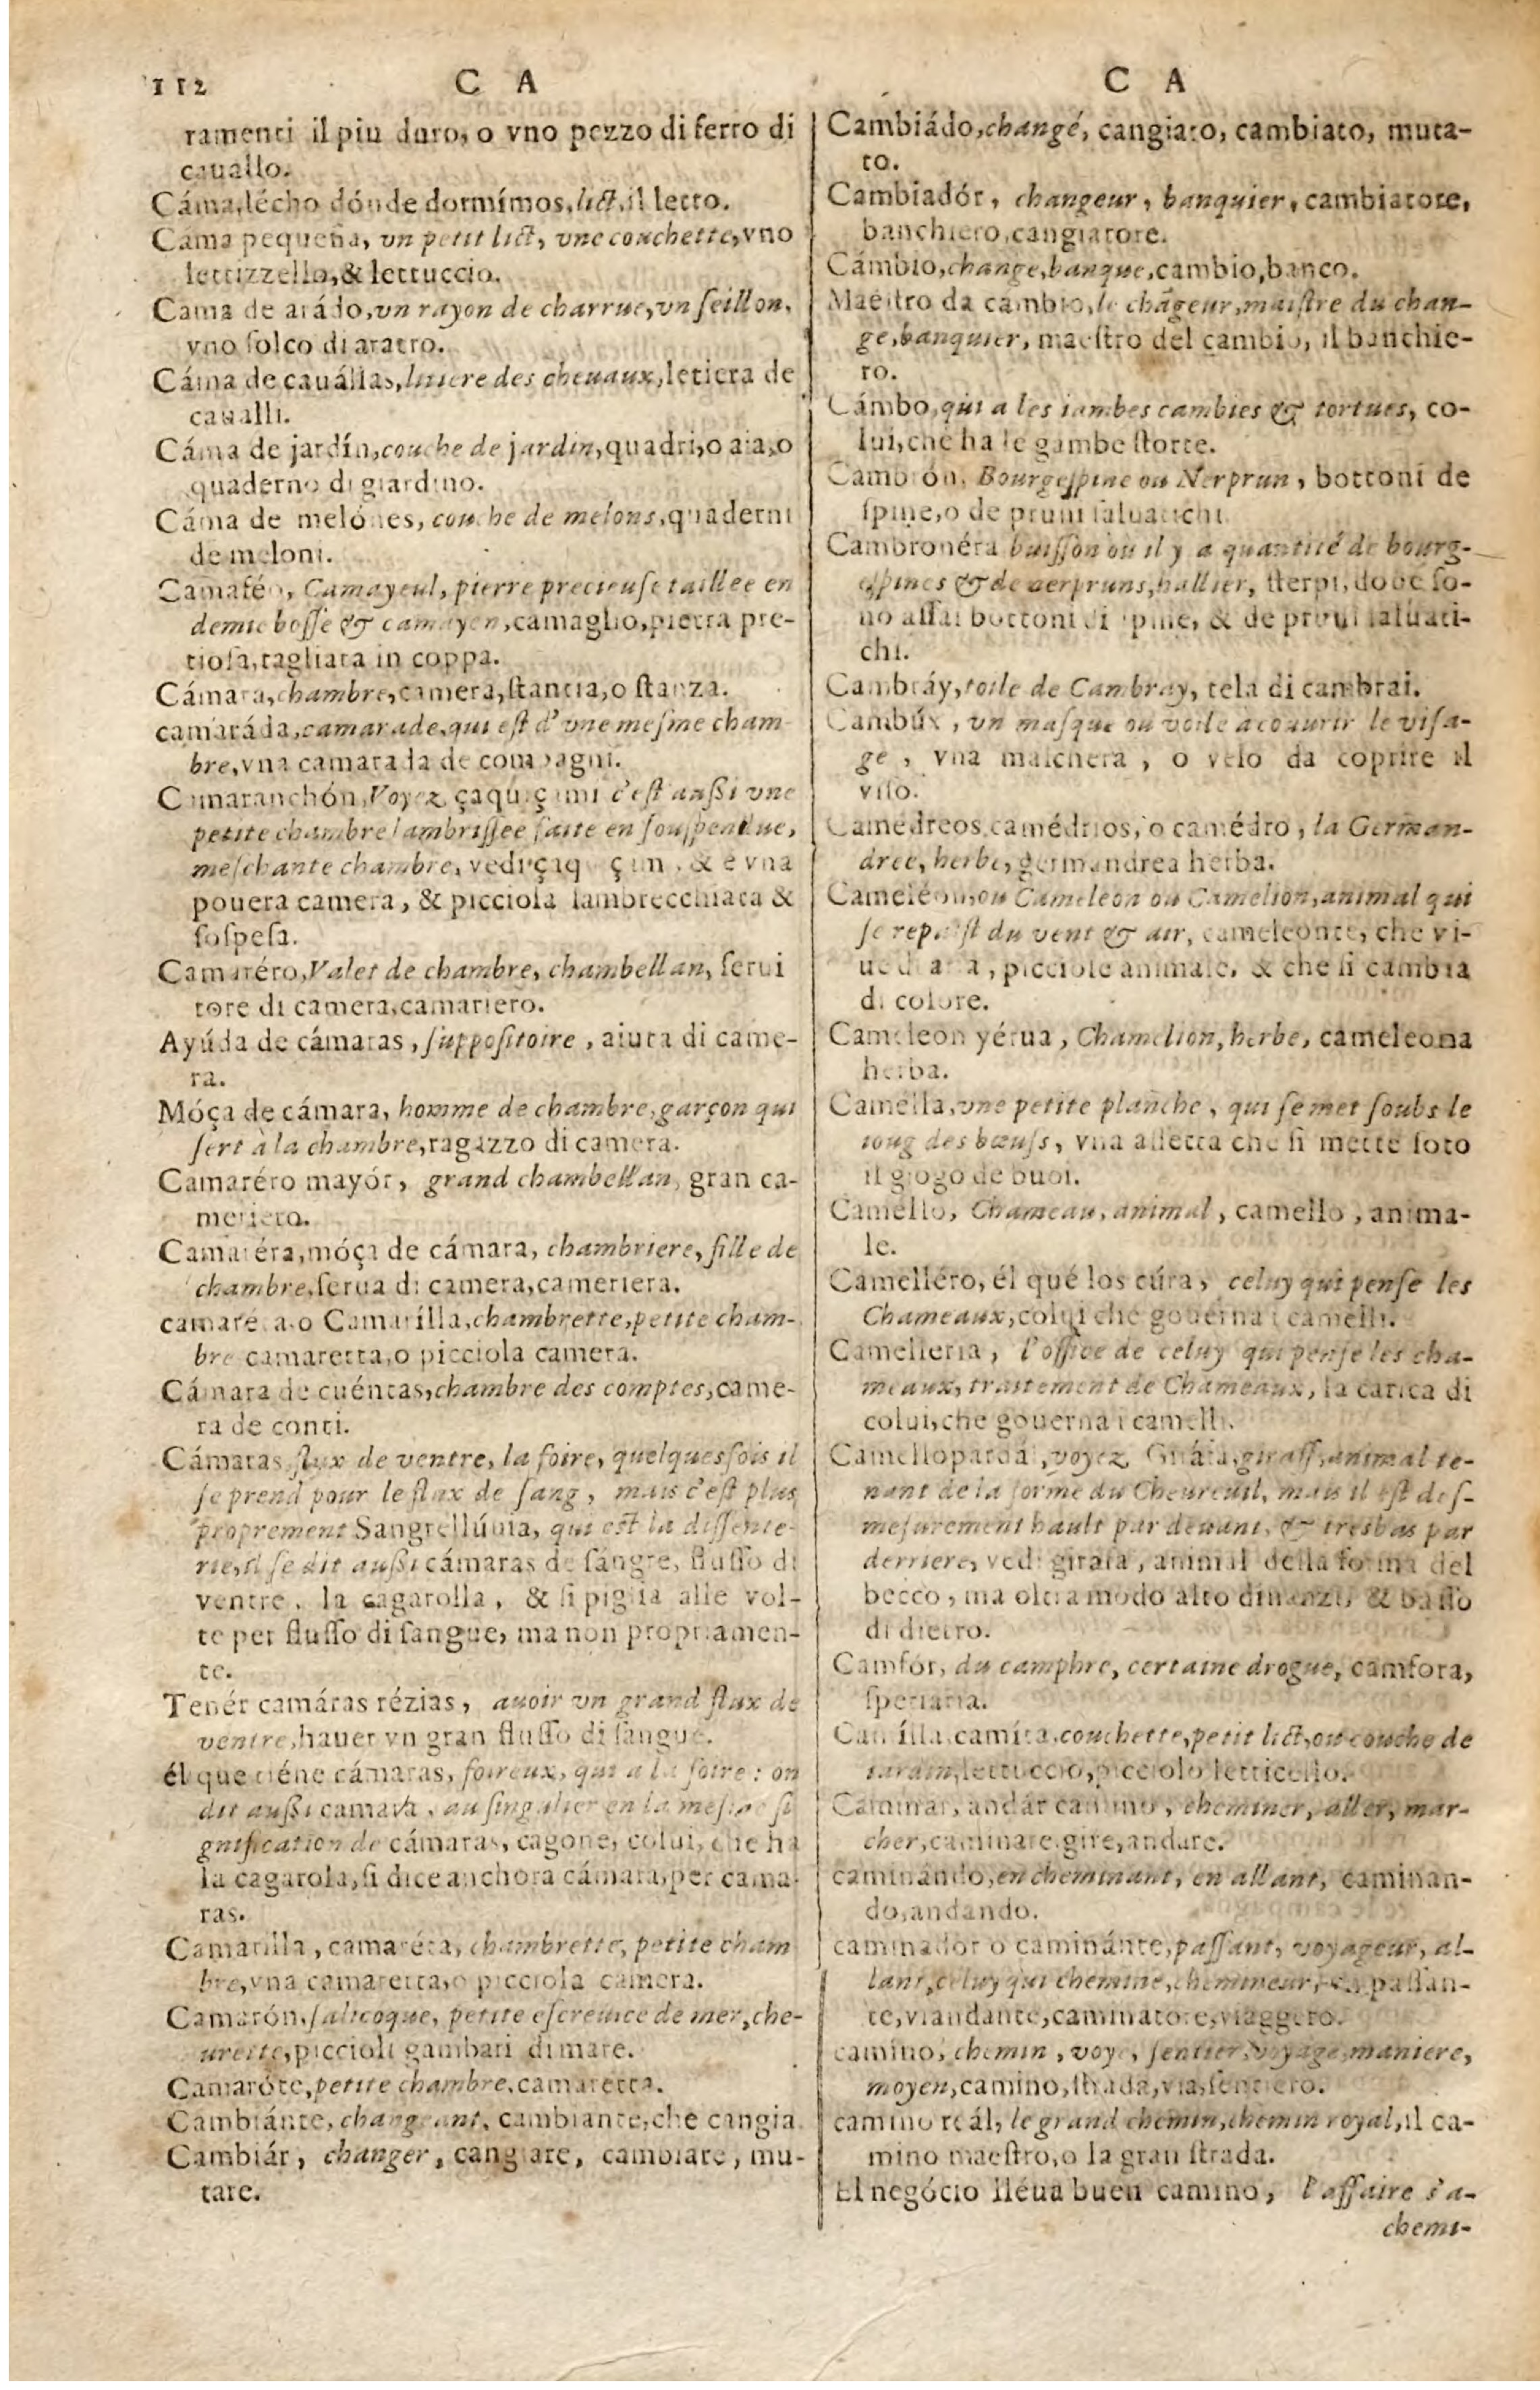 112 C A
ramenti il piu duro, o vno pezzo di ferro di
cauallo.
Cáma, lécho dónde dormímos, lict, il letto.
Cáma pequeña, vn petit lict, vne couchette, vno
lettizzello, & lettuccio.
Cama de arádo, vn rayon de charrue, vn ſeillon,
vno ſolco di aratro.
Cáma de cauállas, litiere des cheuaux, letiera de
caualli.
Cáma de jardín, couche de jardin, quadri, o aia, o
quaderno di giardino.
Cáma de melónes, couche de melons, quaderni
de meloni.
Camaféo, Camayeul, pierre precieuſe taillee en
demie boſſe & camayen, camaglio, pietra pre-
tioſa, tagliata in coppa.
Cámara, chambre, camera, ſtantia, o ſtanza.
camaráda, camarade, qui eſt d'vne meſme cham
bre, vna camarada de compagni.
Camaranchón, Voyez çaquiçami c'eſt außi vne
petite chambre lambriſſee faite en ſouſpendue,
meſchante chambre, vedi çaq çam, & è vna
pouera camera, & picciola lambrecchiata &
ſoſpeſa.
Camaréro, Valet de chambre, chambellan, ſerui
tore di camera, camariero.
Ayúda de cámaras, ſuppoſitoire, aiuta di came-
ra.
Móça de cámara, homme de chambre, garçon qui
ſert à la chambre, ragazzo di camera.
Camaréro mayór, grand chambellan, gran ca-
meriero.
Camaréra, móça de cámara, chambriere, fille de
chambre, ſerua di camera, cameriera.
camaréta, o Camarílla, chambrette, petite cham-
bre camaretta, o picciola camera.
Cámara de cuéntas, chambre des comptes, came-
ra de conti.
Cámaras flux de ventre, la foire, quelquesfois il
ſe prend pour le flux de ſang, mais c'eſt plus
proprement Sangrellúuia, qui est la diſſente-
rie, il ſe dit außi cámaras de ſángre, fluſſo di
ventre, la cagarolla, & ſi piglia alle vol-
te per fluſſo di ſangue, ma non propriamen-
te.
Tenér camáras rézias, auoir vn grand flux de
ventre, hauer vn gran fluſſo di ſangue.
él que tiéne cámaras, foireux, qui a la foire: on
dit außi camara, au ſingulier en la meſme ſi
gnification de cámaras, cagone, colui, che ha
la cagarola, ſi dice anchora cámara, per cama-
ras.
Camarilla, camaréta, chambrette, petite cham
bre, vna camaretta, o picciola camera.
Camarón, ſalicoque, petite eſcreuice de mer, che-
urette, piccioli gambari di mare.
Camaróte, petite chambre, camaretta.
Cambiánte, changeant, cambiante, che cangia
Cambiár, changer, cangiare, cambiare, mu-
tare.
C A
Cambiádo, changé, cangiato, cambiato, muta-
to.
Cambiadór, changeur, banquier, cambiatore,
banchiero, cangiatore.
Cámbio, change, banque, cambio, banco.
Maéſtro da cambio, le chãgeur, maiſtre du chan-
ge, banquier, maeſtro del cambio, il banchie-
ro.
Cámbo, qui a les iambes cambies & tortues, co-
lui, che ha le gambe ſtorte.
Cambrón, Bourgeſpine ou Nerprun, bottoni de
ſpine, o de pruni ſaluatichi.
Cambronéra buiſſon ou il y a quantité de bourg-
eſpines & de nerpruns, hallier, ſterpi, doue ſo-
no aſſai bottoni di ſpine, & de pruni ſaluati-
chi.
Cambráy, toile de Cambray, tela di cambrai.
Cambúx, vn maſque ou voile a couurir le viſa-
ge, vna maſchera, o velo da coprire il
viſo.
Camedreos, camédrios, o camédro, la German-
dree, herbe, germandrea herba.
Cameleon, ou Cameleon ou Camelion, animal qui
ſe repaiſt du vent & air, cameleonte, che vi-
ue di aria, picciole animale, & che ſi cambia
di colore.
Cameleon yérua, Chamelion, herbe, cameleona
herba.
Camella, vne petite planche, qui ſe met ſoubs le
ioug des bœufs, vna aſſetta che ſi mette ſoto
il giogo de buoi.
Camello, Chameau, animal, camello, anima-
le.
Camelléro, él qué los cúra, celuy qui penſe les
Chameaux, colui che gouerna i camelli.
Camelleria, l'office de celuy qui penſe les cha-
meaux, traitement de Chameaux, la carica di
colui, che gouerna i camelli.
Camellopardál, voyez Giráfa, giraff, animal te-
nant de la forme du Cheureuil, mais il eſt deſ-
meſurement hault par deuant, & tresbas par
derriere, vedi girafa, animal della forma del
becco, ma oltra modo alto dinanzi, & baſſo
di dietro.
Camfór, du camphre, certaine drogue, camfora,
ſpetiaria.
Camílla, camíta, couchette, petit lict, ou couche de
iardin, lettuccio, picciolo letticello.
Caminar, andár camino, cheminer, aller, mar-
cher, caminare, gire, andare.
caminándo, en cheminant, en allant, caminan-
do, andando.
caminador o caminánte, paſſant, voyageur, al-
lant, celuy qui chemine, chemineur, paſſan-
te, viandante, caminatore, viaggero.
camino, chemin, voye, ſentier, voyage, maniere,
moyen, camino, ſtrada, via, ſentiero.
camino reál, le grand chemin, chemin royal, il ca-
mino maeſtro, o la gran ſtrada.
El negócio lléua buen camino, l'affaire s'a-
chemi-